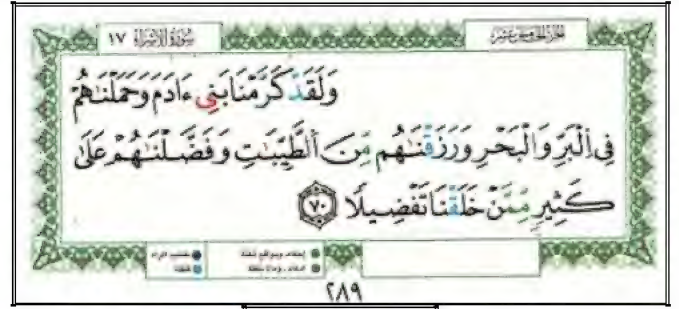 سُورَةُ الإِسْرَاءِ ١٧
الجزء الخامس عشر
وَلَقَدْ كَرَّمْنَا بَنِي ءَادَمَ وَحَمَلْنَٰهُمْ
فِي الْبَرِّ وَالْبَحْرِ وَرَزَقْنَٰهُم مِّنَ الطَّيِّبَٰتِ وَفَضَّلْنَٰهُمْ عَلَىٰ
كَثِيرٍ مِّمَّنْ خَلَقْنَا تَفْضِيلًا ٧٠
٢٨٩